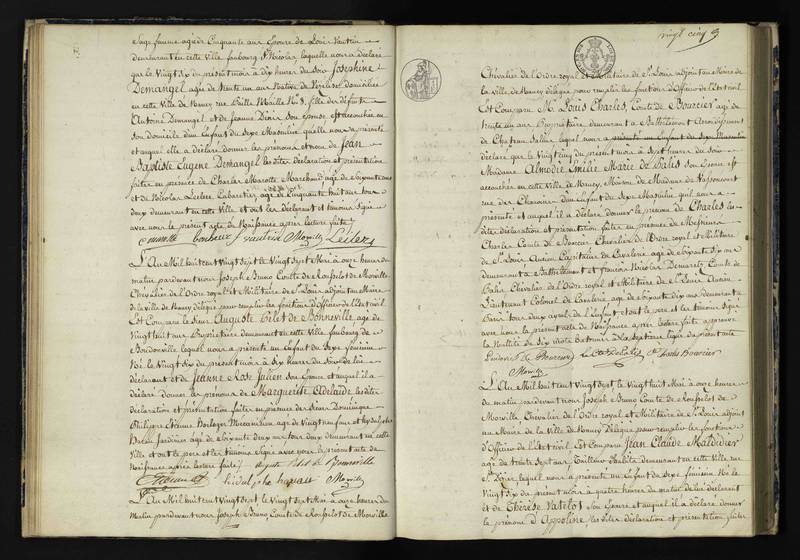 Sage femme agée de Cinquante ans Epouse de Louis Vautrin
demeurant en cette Ville faubourg St Nicolas, laquelle nous a déclaré
que le Vingt Six du présent mois à dix heures du soir Josephine
Demangel agée de trente un ans Native de Vézelise domiciliée
en cette Ville de Nancy rue Vieille N° 8, fille des défunts
Antoine Demangel et de Jeanne son épouse, est accouchée en
son domicile d'un Enfant du Sexe Masculin quelle nous a présenté
et auquel elle a déclaré donner les prénoms et nom de Jean
Baptiste Eugene Demangel les dites déclaration et présentation
faites en présence de Charles Marotte Marchand agé de soixante ans
et de Nicolas Leclerc Cabaretier, agé de Cinquante huit ans tous
deux demeurant en cette Ville et ont les déclarant et témoins Signé
avec nous le présent acte de Naissance après lecture faite
Marotte Vautrin Morville Leclerc
L'An Mil huit cent Vingt Sept le Vingt Sept Mai à onze heures du
matin pardevant nous Joseph Bruno Comte de Rousselot de Morville
Chevalier de l'Ordre royal et Militaire de St Louis adjoint au Maire
de la Ville de Nancy délégué pour remplir les fonctions d'Officier de l'Etat civil
Est Comparu le Sieur Auguste Pilet de Bonneville agé de
Vingt huit ans Propriétaire demeurant en cette Ville faubourg de
Boudonville lequel nous a présenté un Enfant du Sexe féminin
Né le Vingt Six du présent mois à Six heures du Soir de lui
déclarant et de Jeanne Rose Julien son Epouse et auquel il a
déclaré donner les prénoms de Marguerite Adelaide les dites
déclaration et présentation faites en présence des Sieurs Dominique
Philippe Etienne Horloger Mécanicien agé de Vingt neuf ans et
Jardinier agé de Soixante deux ans tous deux demeurant en cette
Ville et ont le pere et les témoins Signé avec nous le présent acte de
Naissance après lecture faite
Pilet de Bonneville
Etienne Morville
L'An Mil huit cent Vingt Sept le Vingt Sept Mai à onze heures du
Matin pardevant nous Joseph Bruno Comte de Rousselot de Morville
vingt cinq
Chevalier de l'Ordre royal et Militaire de St Louis adjoint au Maire de
la Ville de Nancy délégué pour remplir les fonctions d'Officier de l'Etat civil
Est Comparu M. Louis Charles, Comte de Bourcier agé de
trente un ans Propriétaire demeurant à Bathelémont Arrondissement
de Chateau Salins lequel nous a présenté un Enfant du Sexe Masculin
déclaré que le Vingt cinq du présent mois à Sept heures du soir
Madame Almodie Emilie Marie de Balis son Epouse est
accouchée en cette Ville de Nancy, Maison de Madame de
rue des Chanoines d'un Enfant du Sexe Masculin qu'il nous a
présenté et auquel il a déclaré donner le prénom de Charles les
dites déclaration et présentation faites en présence de Messieurs
Charles Comte de Bourcier Chevalier de l'Ordre royal et Militaire
de St Louis Ancien Capitaine de Cavalerie agé de Soixante Six ans
demeurant à Bathelémont et François Nicolas Comte de
Balis, Chevalier de l'Ordre royal et Militaire de St Louis Ancien
Lieutenant Colonel de Cavalerie agé de Soixante dix ans demeurant à
Paris tous deux ayeuls de l'Enfant et ont le pere et les témoins Signé
avec nous le présent acte de Naissance après lecture faite approuvé
la Nullité de Six mots batonnés à la Septième ligne du présent acte
de Bourcier Le Cte de Balis Cte Louis Bourcier
Morville
L'An Mil huit cent Vingt Sept, le Vingt huit Mai à onze heures
du matin pardevant nous Joseph Bruno Comte de Rousselot de
Morville Chevalier de l'Ordre royal et Militaire de St Louis adjoint
au Maire de la Ville de Nancy Délégué pour remplir les fonctions
d'Officier de l'Etat civil Est Comparu Jean Claude Maldidier
agé de trente Sept ans Tailleur d'habits demeurant en cette Ville rue
St Dizier lequel nous a présenté un Enfant du Sexe féminin Né le
Vingt Six du présent mois à quatre heures du matin de lui déclarant
et de Thérèse Vatelot son Epouse et auquel il a déclaré donner
le prénom d'Appoline les dites déclaration et présentation faites